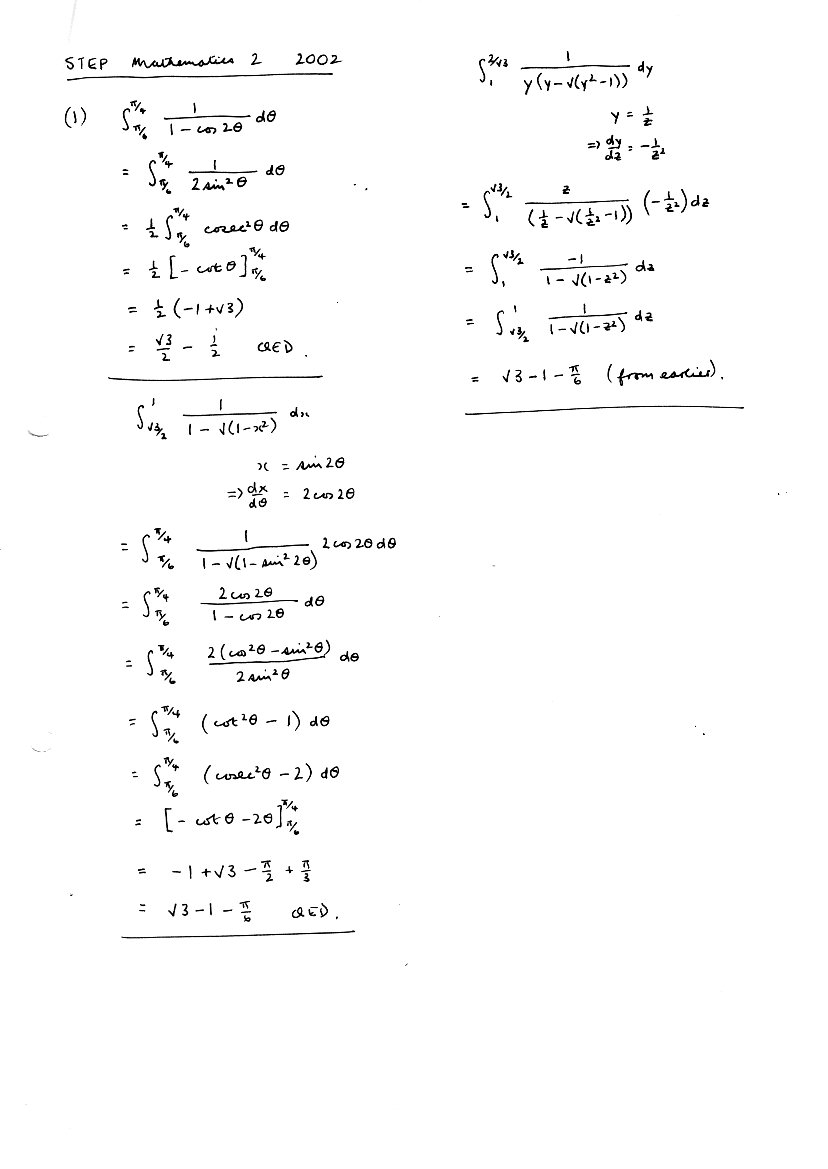 STEP Mathematics 2 2002
(1) ∫_{π/6}^{π/4} 1/(1 − cos 2θ) dθ
= ∫_{π/6}^{π/4} 1/(2 sin²θ) dθ
= ½ ∫_{π/6}^{π/4} cosec²θ dθ
= ½ [− cot θ]_{π/6}^{π/4}
= ½ (−1 + √3)
= √3/2 − 1/2 QED.
∫_{√3/2}^{1} 1/(1 − √(1−x²)) dx
x = sin 2θ
⇒ dx/dθ = 2 cos 2θ
= ∫_{π/6}^{π/4} 1/(1 − √(1 − sin² 2θ)) 2 cos 2θ dθ
= ∫_{π/6}^{π/4} (2 cos 2θ)/(1 − cos 2θ) dθ
= ∫_{π/6}^{π/4} 2(cos²θ − sin²θ)/(2 sin²θ) dθ
= ∫_{π/6}^{π/4} (cot²θ − 1) dθ
= ∫_{π/6}^{π/4} (cosec²θ − 2) dθ
= [− cot θ − 2θ]_{π/6}^{π/4}
= −1 + √3 − π/2 + π/3
= √3 − 1 − π/6 QED.
∫_{1}^{2/√3} 1/(y(y − √(y² − 1))) dy
y = 1/z
⇒ dy/dz = −1/z²
= ∫_{1}^{√3/2} z/((1/z − √(1/z² − 1))) (−1/z²) dz
= ∫_{1}^{√3/2} −1/(1 − √(1−z²)) dz
= ∫_{√3/2}^{1} 1/(1 − √(1−z²)) dz
= √3 − 1 − π/6 (from earlier).